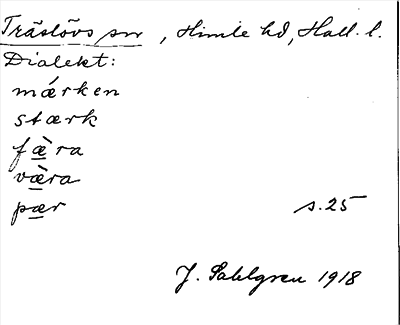 Träslövs sn, Himle hd, Hall. l.
Dialekt:
mǽrken
stærk
fæ̀ra
væ̀ra
pær s. 25
J. Sahlgren 1918